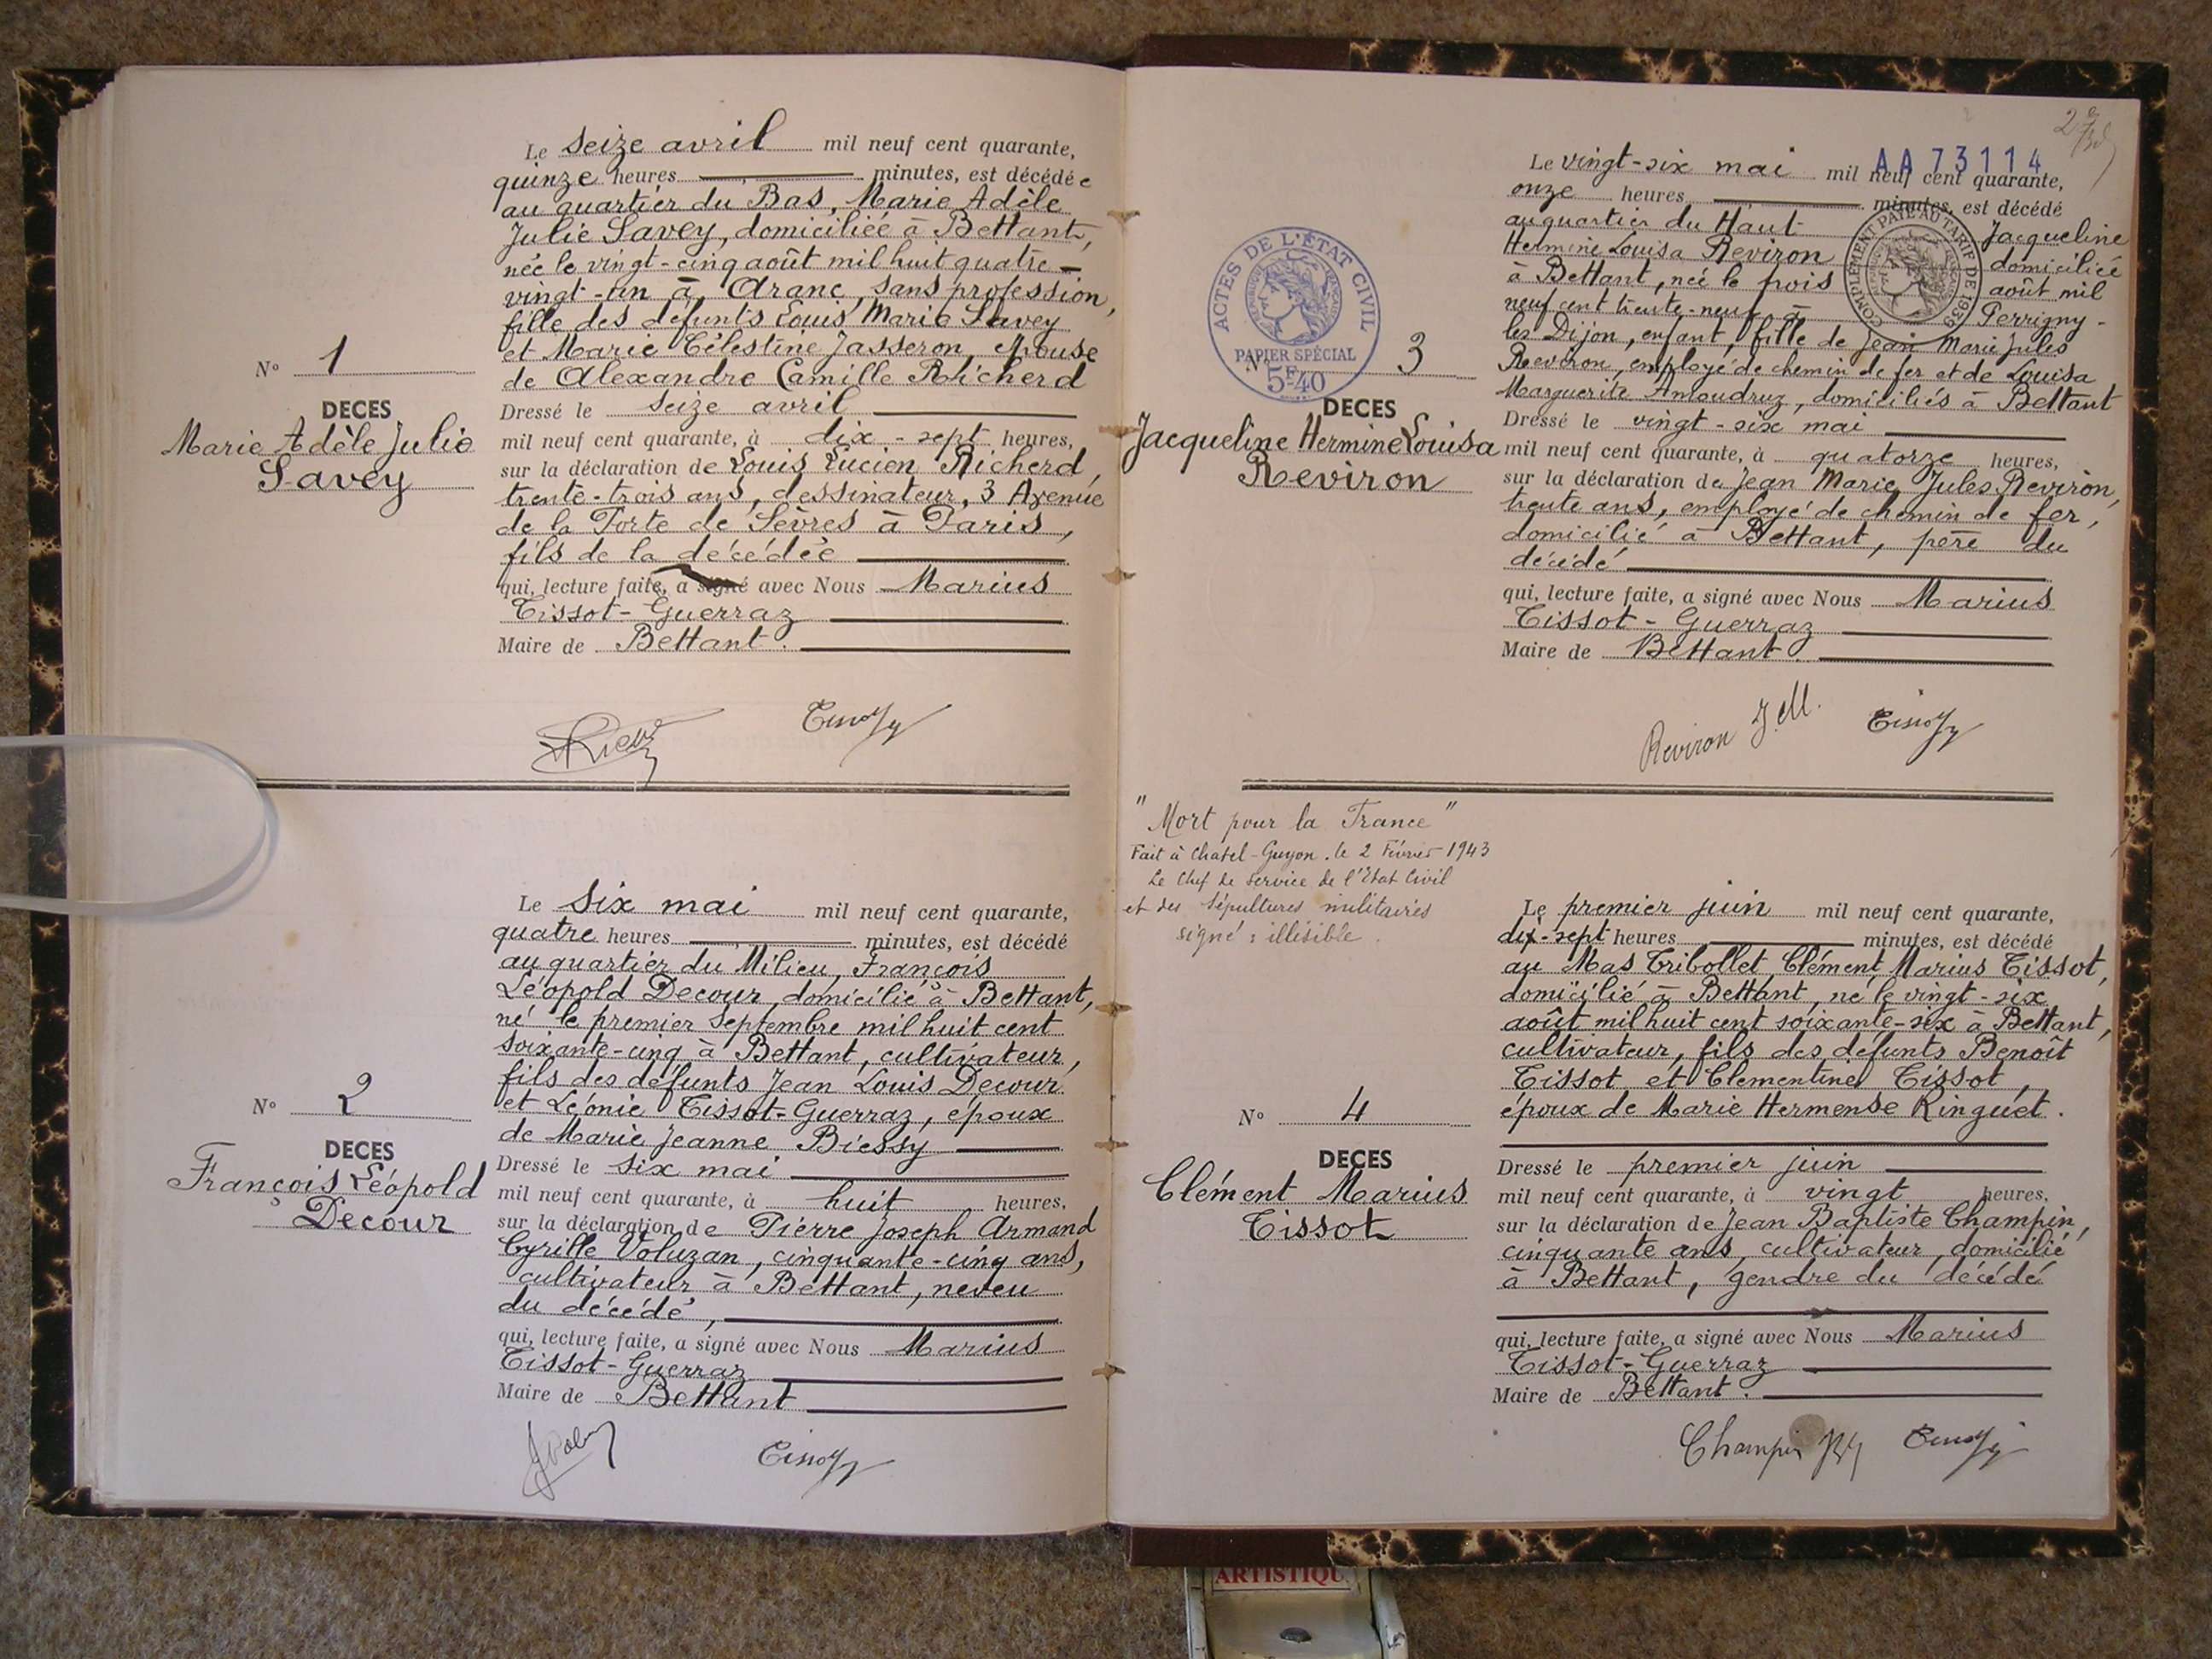 Le seize avril mil neuf cent quarante,
quinze heures minutes, est décédée
au quartier du Bas, Marie Adèle
Julie Savey, domiciliée à Bettant,
née le vingt-cinq août mil huit quatre-
vingt-un à Aranc, sans profession,
fille des défunts Louis Marie Savey
et Marie Célestine Jasseron, épouse
de Alexandre Camille Richerd
Dressé le seize avril
mil neuf cent quarante, à dix-sept heures,
sur la déclaration de Louis Lucien Richerd,
trente-trois ans, dessinateur, 3 Avenue
de la Porte de Sèvres à Paris,
fils de la décédée
qui, lecture faite, a signé avec Nous Marius
Tissot-Guerraz
Maire de Bettant.
N° 1
DECES
Marie Adèle Julie
Savey
Le six mai mil neuf cent quarante,
quatre heures minutes, est décédé
au quartier du Milieu, François
Léopold Decour, domicilié à Bettant,
né le premier Septembre mil huit cent
soixante-cinq à Bettant, cultivateur,
fils des défunts Jean Louis Decour
et Léonie Tissot-Guerraz, époux
de Marie Jeanne Biessy
Dressé le six mai
mil neuf cent quarante, à huit heures,
sur la déclaration de Pierre Joseph Armand
Cyrille Voluzan, cinquante-cinq ans,
cultivateur à Bettant, neveu
du décédé,
qui, lecture faite, a signé avec Nous Marius
Tissot-Guerraz
Maire de Bettant
N° 2
DECES
François Léopold
Decour
AA 73114
Le vingt-six mai mil neuf cent quarante,
onze heures minutes, est décédé
au quartier du Haut Jacqueline
Hermine Louisa Reviron domiciliée
à Bettant, née le trois août mil
neuf cent trente-neuf à Perrigny-
les Dijon, enfant, fille de Jean Marie Jules
Reviron, employé de chemin de fer et de Louisa
Marguerite Amoudruz, domiciliés à Bettant
Dressé le vingt-six mai
mil neuf cent quarante, à quatorze heures,
sur la déclaration de Jean Marie Jules Reviron,
trente ans, employé de chemin de fer,
domicilié à Bettant, père du
décédé
qui, lecture faite, a signé avec Nous Marius
Tissot-Guerraz
Maire de Bettant.
Reviron J.M.
COMPLÉMENT PAYÉ AU TARIF DE 1939
ACTES DE L'ÉTAT CIVIL
PAPIER SPÉCIAL
5F40
3
DECES
Jacqueline Hermine Louisa
Reviron
"Mort pour la France"
Fait à Chatel-Guyon. le 2 Février 1943
Le Chef de service de l'Etat Civil
et des Sépultures militaires
signé : illisible.
Le premier juin mil neuf cent quarante,
dix-sept heures minutes, est décédé
au Mas Tribollet Clément Marius Tissot,
domicilié à Bettant, né le vingt-six
août mil huit cent soixante-six à Bettant,
cultivateur, fils des défunts Benoît
Tissot et Clementine Tissot,
époux de Marie Hermense Ringuet.
Dressé le premier juin
mil neuf cent quarante, à vingt heures,
sur la déclaration de Jean Baptiste Champin,
cinquante ans, cultivateur, domicilié
à Bettant, gendre du décédé
qui, lecture faite, a signé avec Nous Marius
Tissot-Guerraz
Maire de Bettant.
Champin
N° 4
DECES
Clément Marius
Tissot
ARTISTIQU